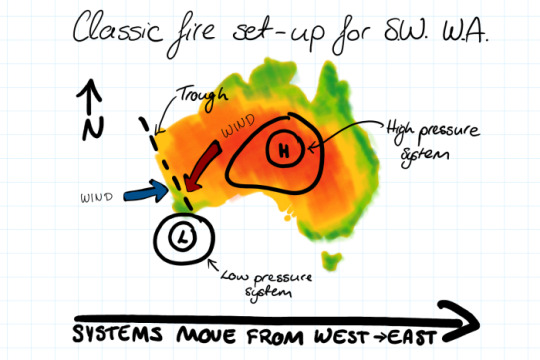 Classic fire set-up for S.W. W.A.
Trough
N
WIND
H
High pressure
system
WIND
L
Low pressure
system
SYSTEMS MOVE FROM WEST → EAST